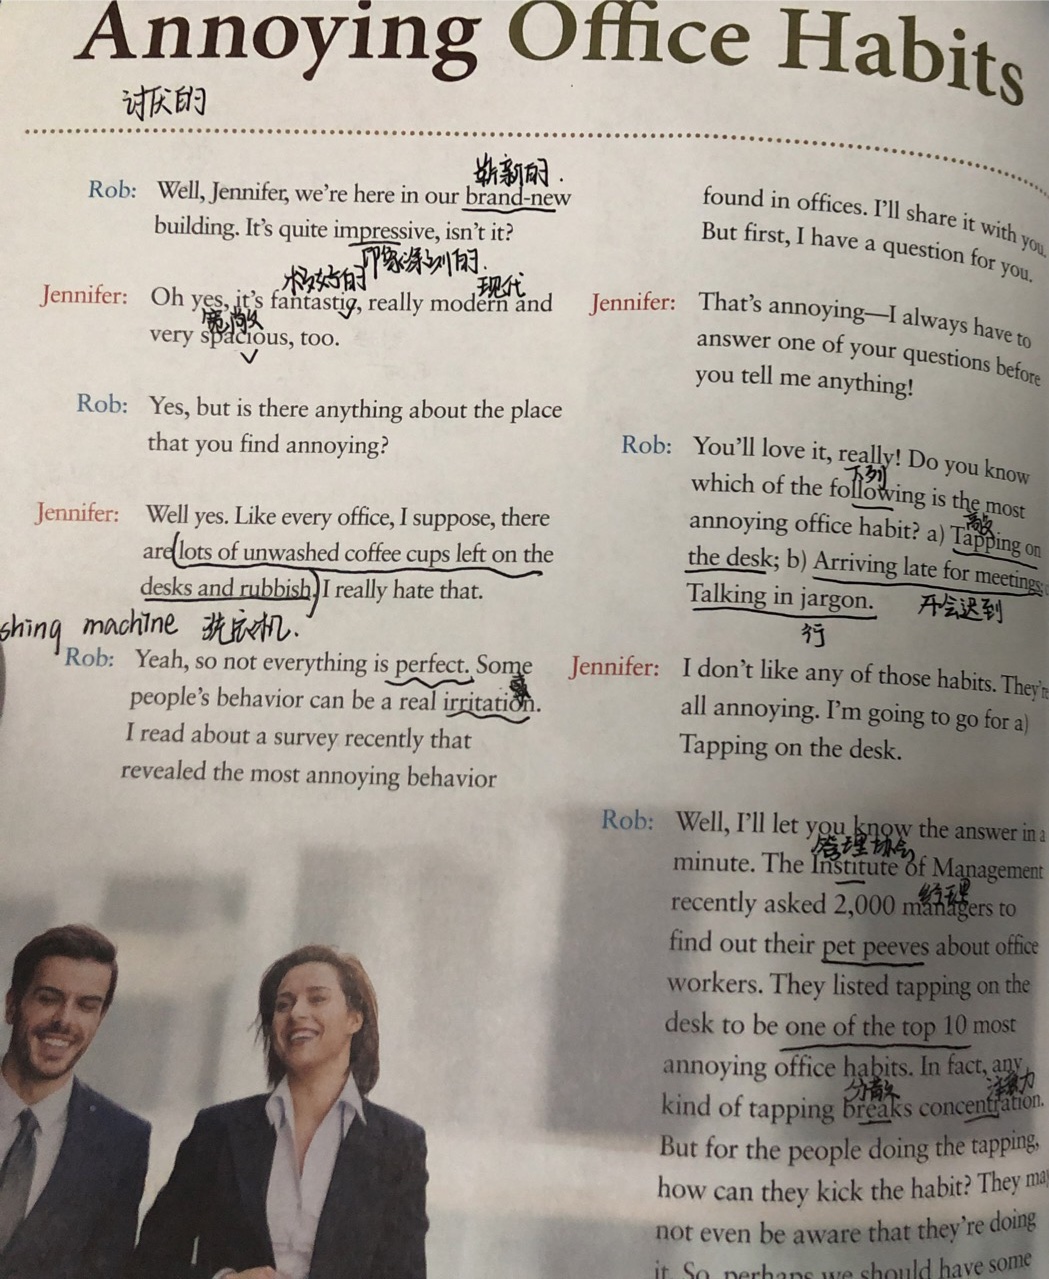 Annoying Office Habits
讨厌的
崭新的.
Rob: Well, Jennifer, we're here in our brand-new
building. It's quite impressive, isn't it?
印象深刻的.
极好的 现代
Jennifer: Oh yes, it's fantastic, really modern and
宽敞
very spacious, too.
Rob: Yes, but is there anything about the place
that you find annoying?
Jennifer: Well yes. Like every office, I suppose, there
are lots of unwashed coffee cups left on the
desks and rubbish. I really hate that.
shing machine 洗衣机.
Rob: Yeah, so not everything is perfect. Some
people's behavior can be a real irritation.
I read about a survey recently that
revealed the most annoying behavior
found in offices. I'll share it with you.
But first, I have a question for you.
Jennifer: That's annoying—I always have to
answer one of your questions before
you tell me anything!
Rob: You'll love it, really! Do you know
下列
which of the following is the most
敲
annoying office habit? a) Tapping on
the desk; b) Arriving late for meetings;
Talking in jargon. 开会迟到
行
Jennifer: I don't like any of those habits. They're
all annoying. I'm going to go for a)
Tapping on the desk.
Rob: Well, I'll let you know the answer in a
管理协会
minute. The Institute of Management
经理
recently asked 2,000 managers to
find out their pet peeves about office
workers. They listed tapping on the
desk to be one of the top 10 most
annoying office habits. In fact, any
分散 注意力
kind of tapping breaks concentration.
But for the people doing the tapping,
how can they kick the habit? They may
not even be aware that they're doing
it. So, perhaps we should have some